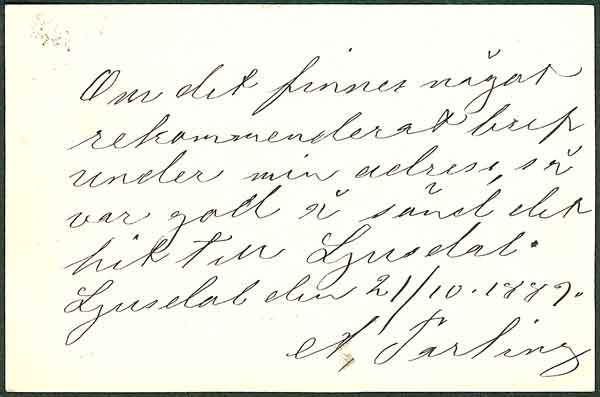 Om det finnes något
rekommenderat bref
under min adress, så
var god å sänd det
hit till Ljusdal.
Ljusdal den 21/10. 1889.
A, Tarling